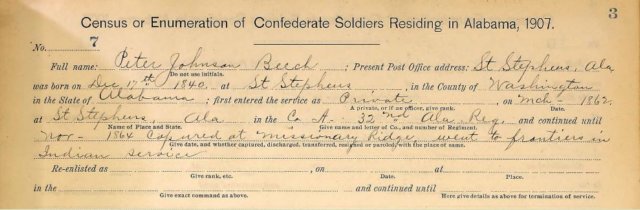 3
Census or Enumeration of Confederate Soldiers Residing in Alabama, 1907.
No. 7
Full name: Peter Johnson Beech ; Present Post Office address: St Stephens, Ala
Do not use initials.
was born on Dec 17th 1840, at St Stephens, in the County of Washington
in the State of Alabama; first entered the service as Private, on Mch 1862,
A private, or if an officer, give rank. Date.
at St Stephens, Ala in the Co A- 32nd Ala Reg. and continued until
Name of Place and State. Give name and letter of Co., and number of Regiment.
Nov- 1864 Capured at Missionary Ridge, went to frontiers in
Give date, and whether captured, discharged, transferred, resigned or paroled, with the place of name.
Indian service
Re-enlisted as , on at
Give rank, etc. Date. Place.
in the and continued until
Give exact command as above. Here give details as above for termination of service.